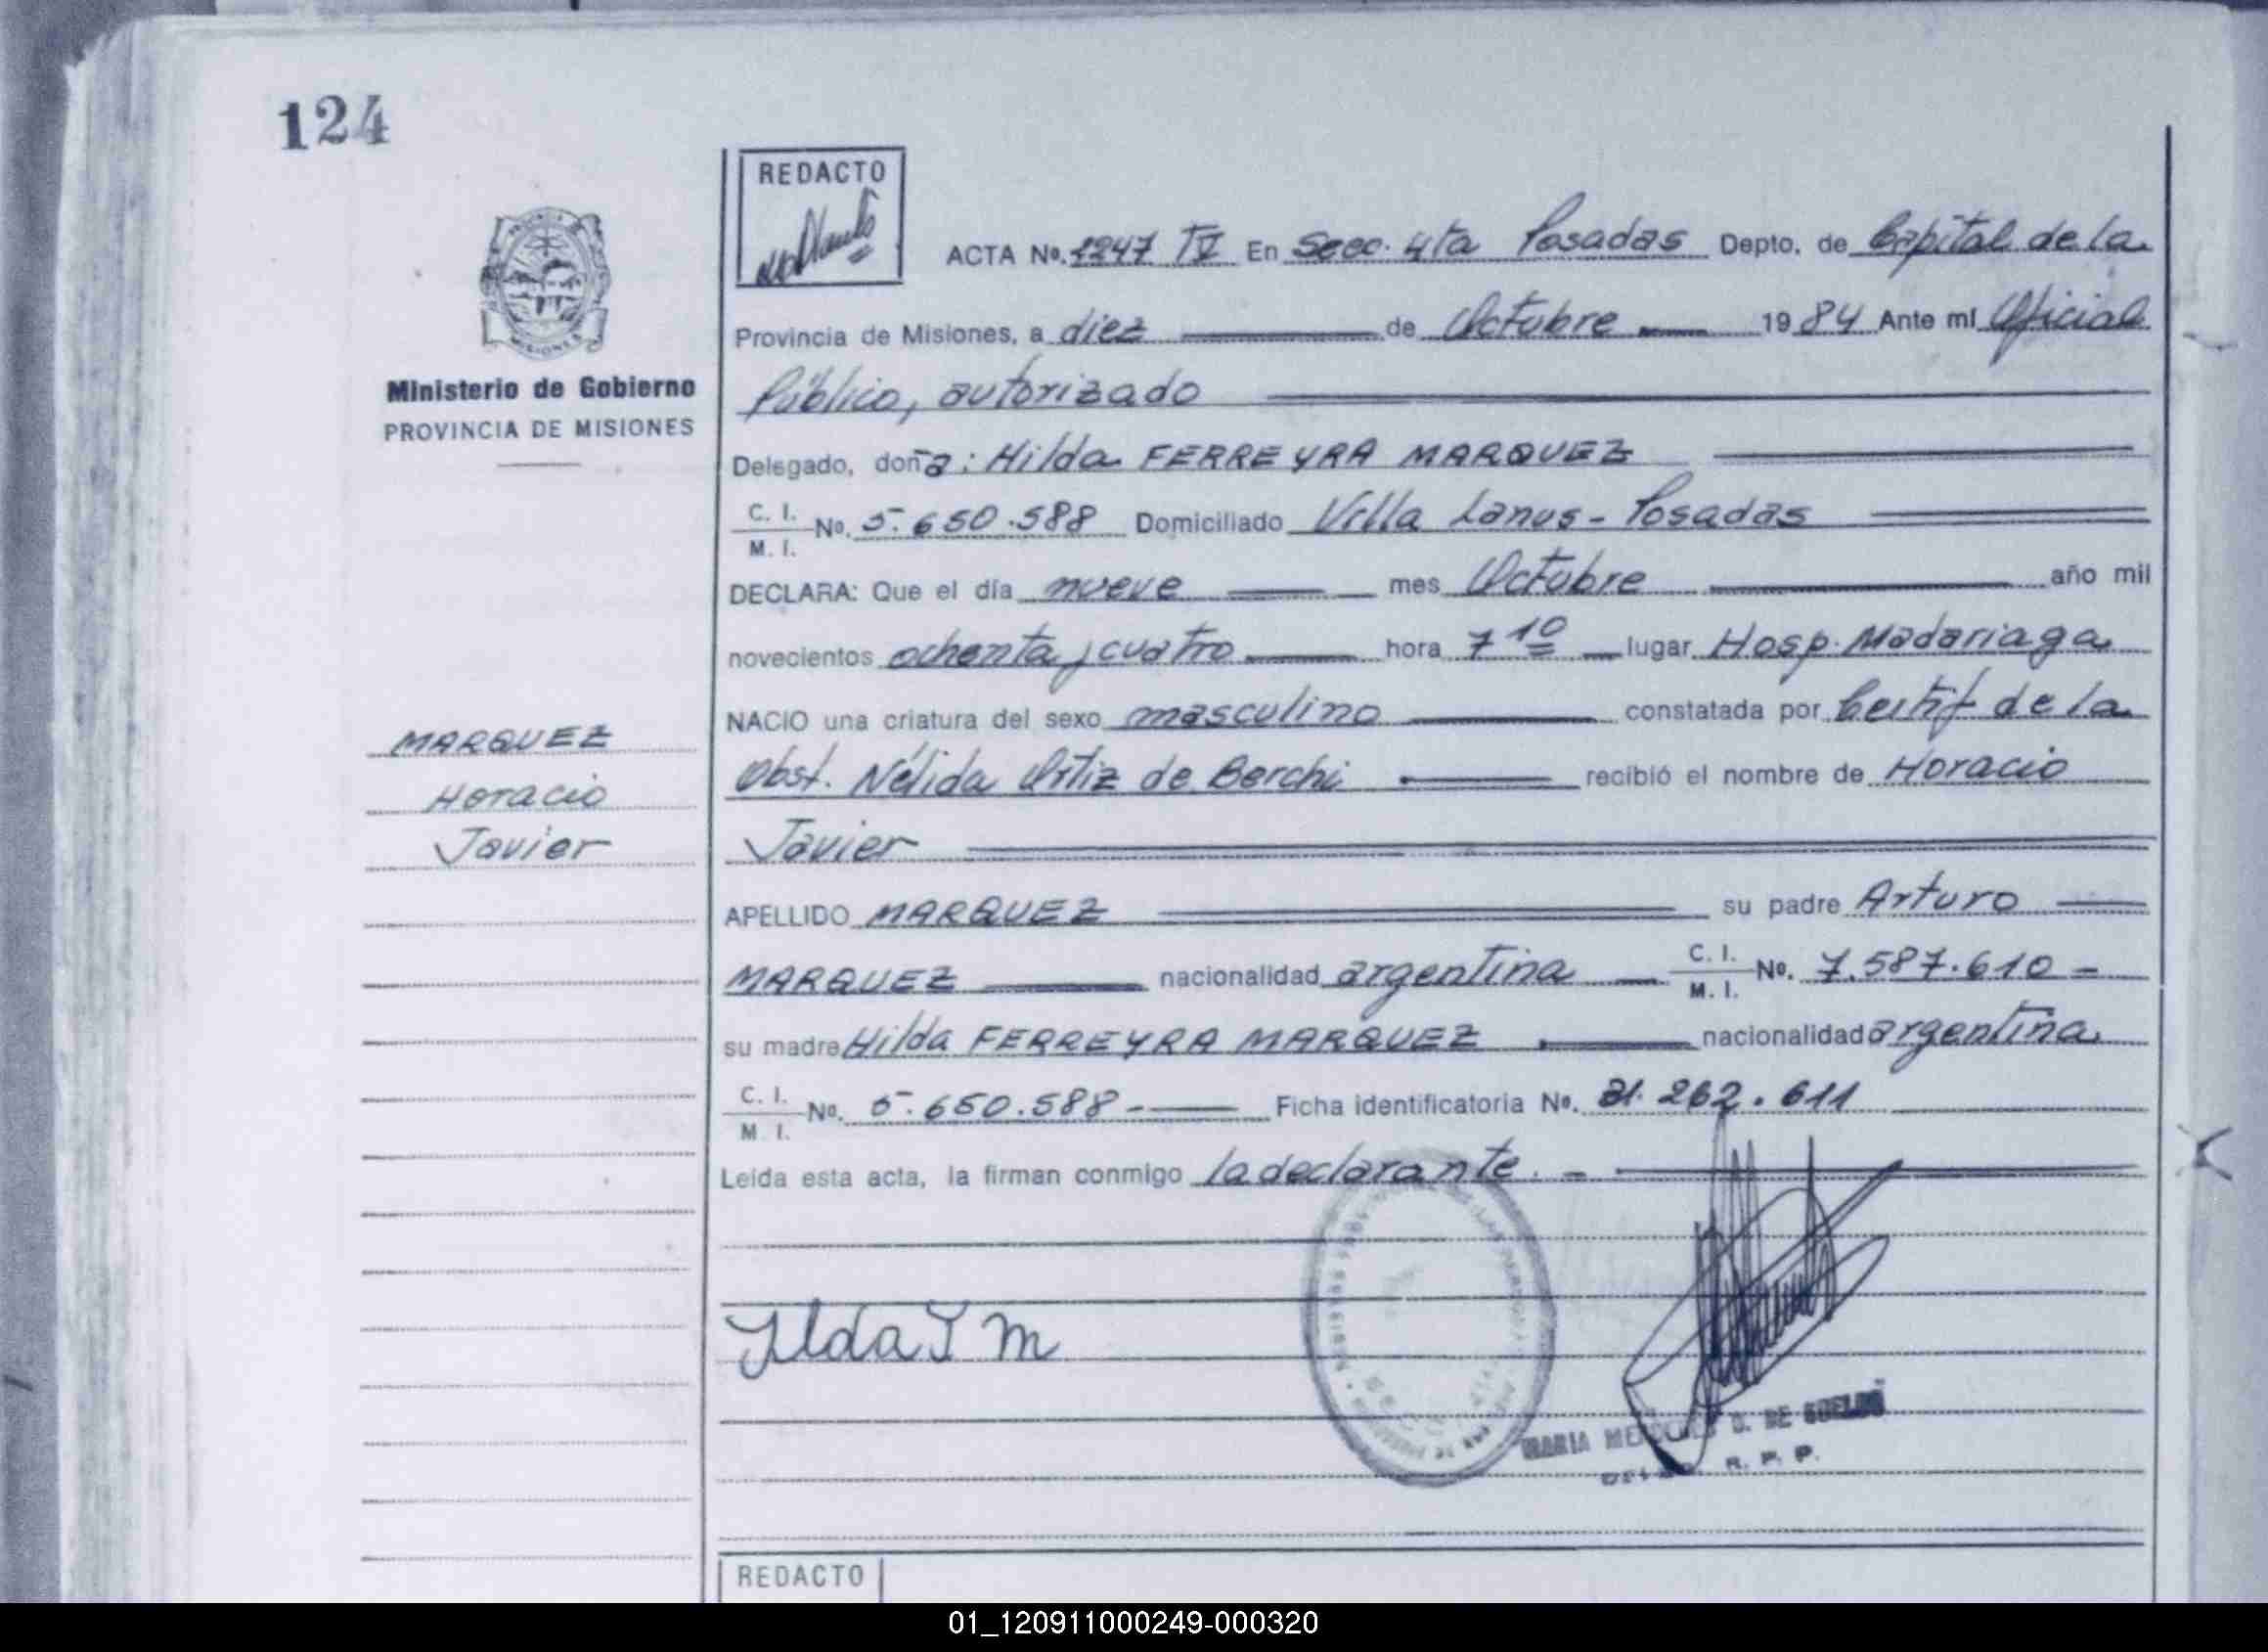 124
REDACTO
ACTA Nº. 1247 IV En Secc. 4ta Posadas Depto. de Capital de la
Provincia de Misiones, a diez de Octubre 1984 Ante mí Oficial
Público, autorizado
Ministerio de Gobierno
PROVINCIA DE MISIONES
Delegado, doña: Hilda FERREYRA MARQUEZ
C. I.
M. I. Nº. 5.650.588 Domiciliado Villa Lanus - Posadas
DECLARA: Que el día nueve mes Octubre año mil
novecientos ochenta y cuatro hora 7 10 lugar Hosp. Madariaga
NACIO una criatura del sexo masculino constatada por Certif de la
MARQUEZ
Obst. Nélida Ortiz de Berchi recibió el nombre de Horacio
Horacio
Javier
Javier
APELLIDO MARQUEZ su padre Arturo
MARQUEZ nacionalidad argentina C. I. M. I. Nº. 7.587.610 -
su madre Hilda FERREYRA MARQUEZ nacionalidad argentina
C. I.
M. I. Nº. 5.650.588 - Ficha identificatoria Nº. 31.262.611
Leída esta acta, la firman conmigo la declarante. -
MARIA D. DE
R. P. P.
REDACTO
01_120911000249-000320